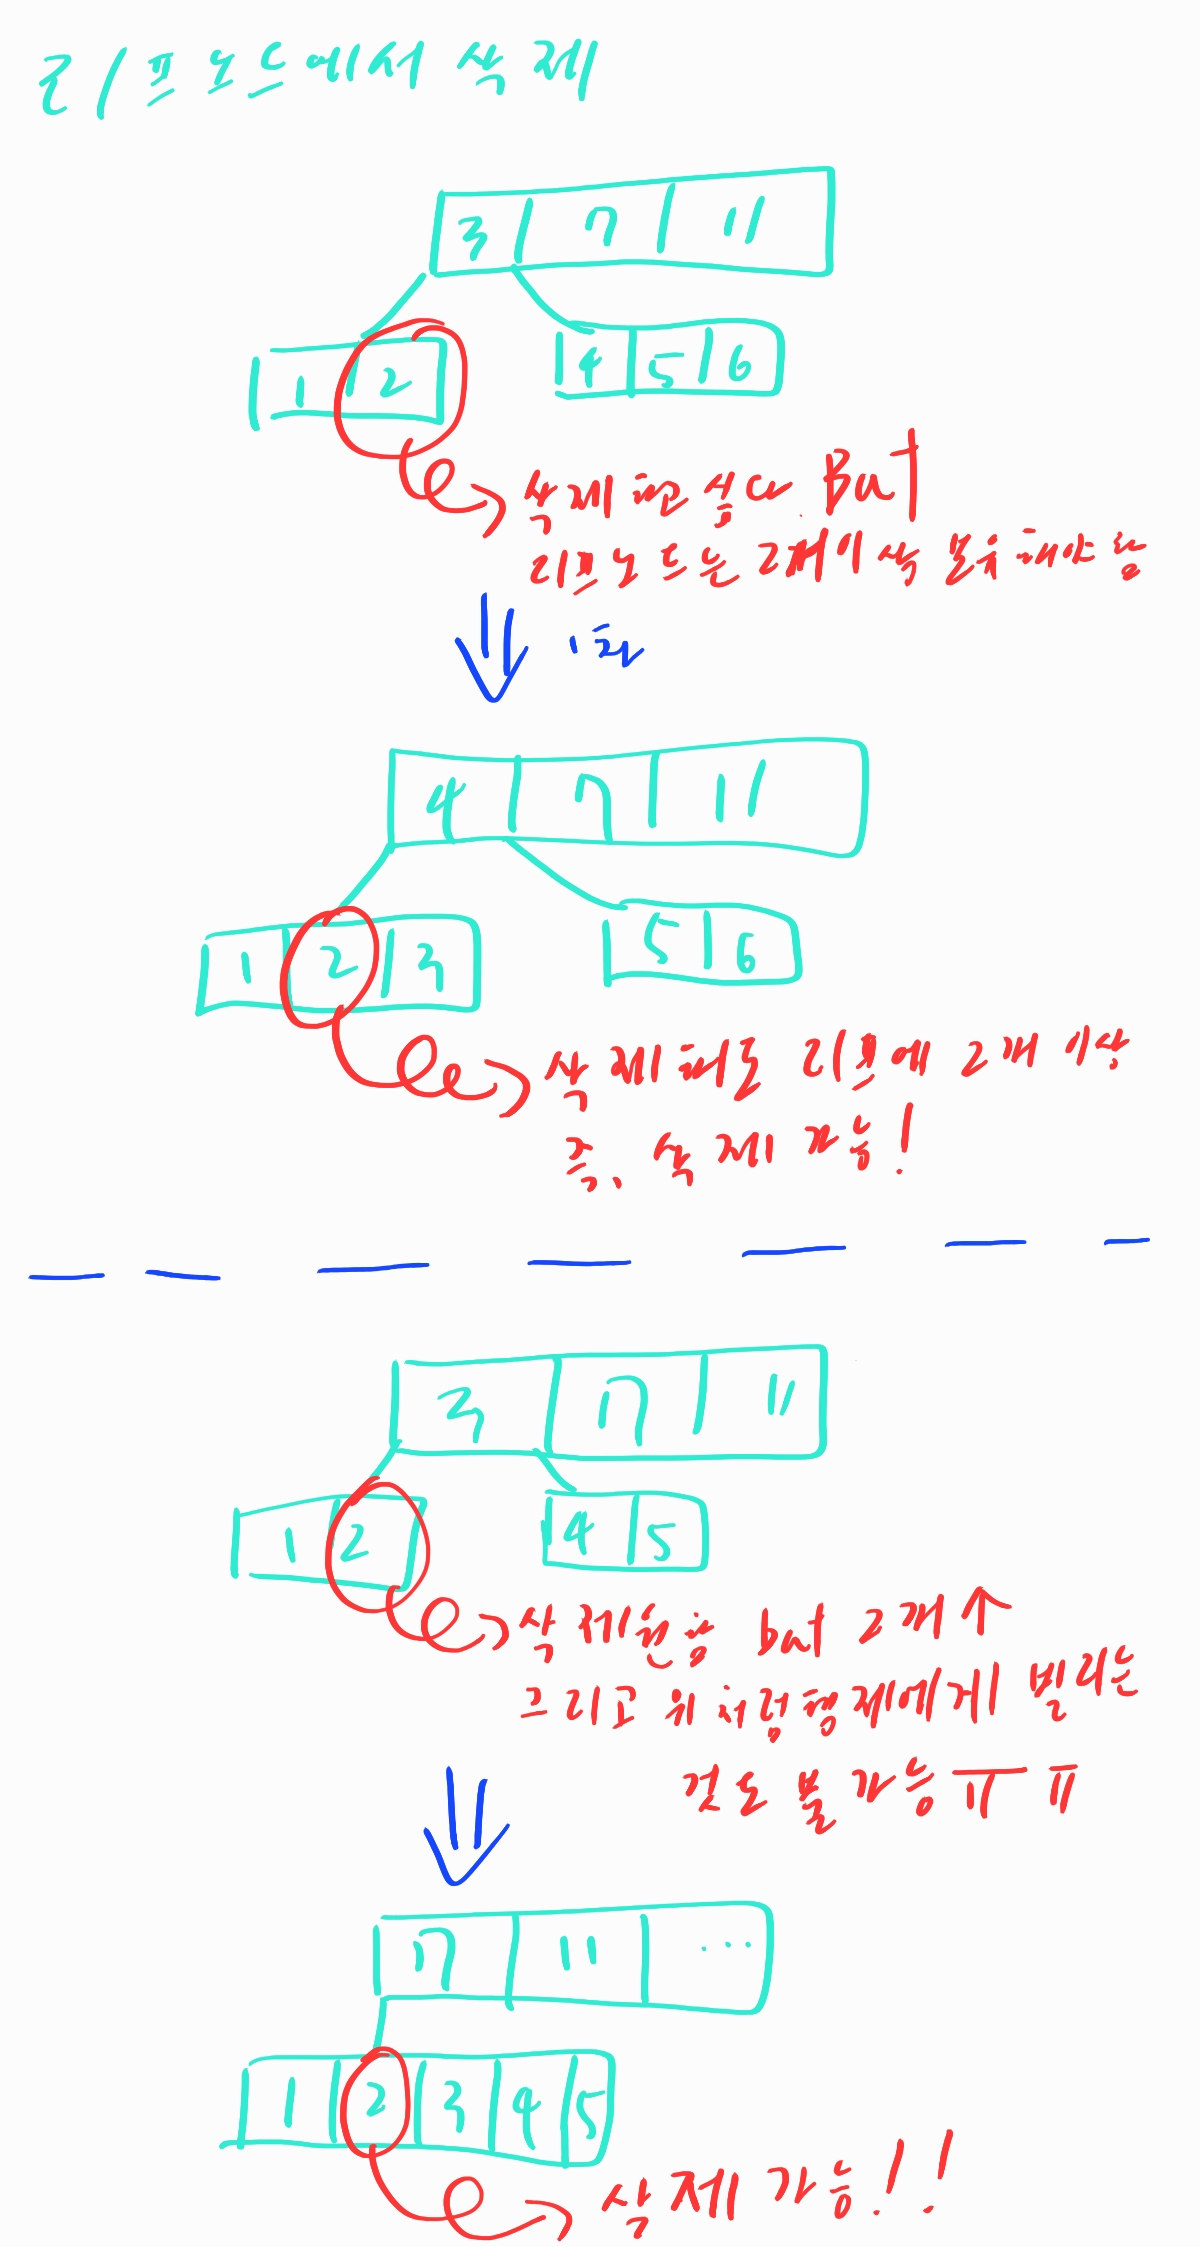 리프 노드에서 삭제
3 7 11
1 2 4 5 6
삭제하고 싶다 But
리프노드는 2개이상 보유해야함
4 7 11
1 2 3 5 6
삭제해도 리프에 2개 이상
즉, 삭제 가능!
3 7 11
1 2 4 5
삭제원함 but 2개↑
그리고 위처럼 형제에게 빌리는
것도 불가능 ㅠㅠ
7 11 ...
1 2 3 4 5
삭제 가능!!